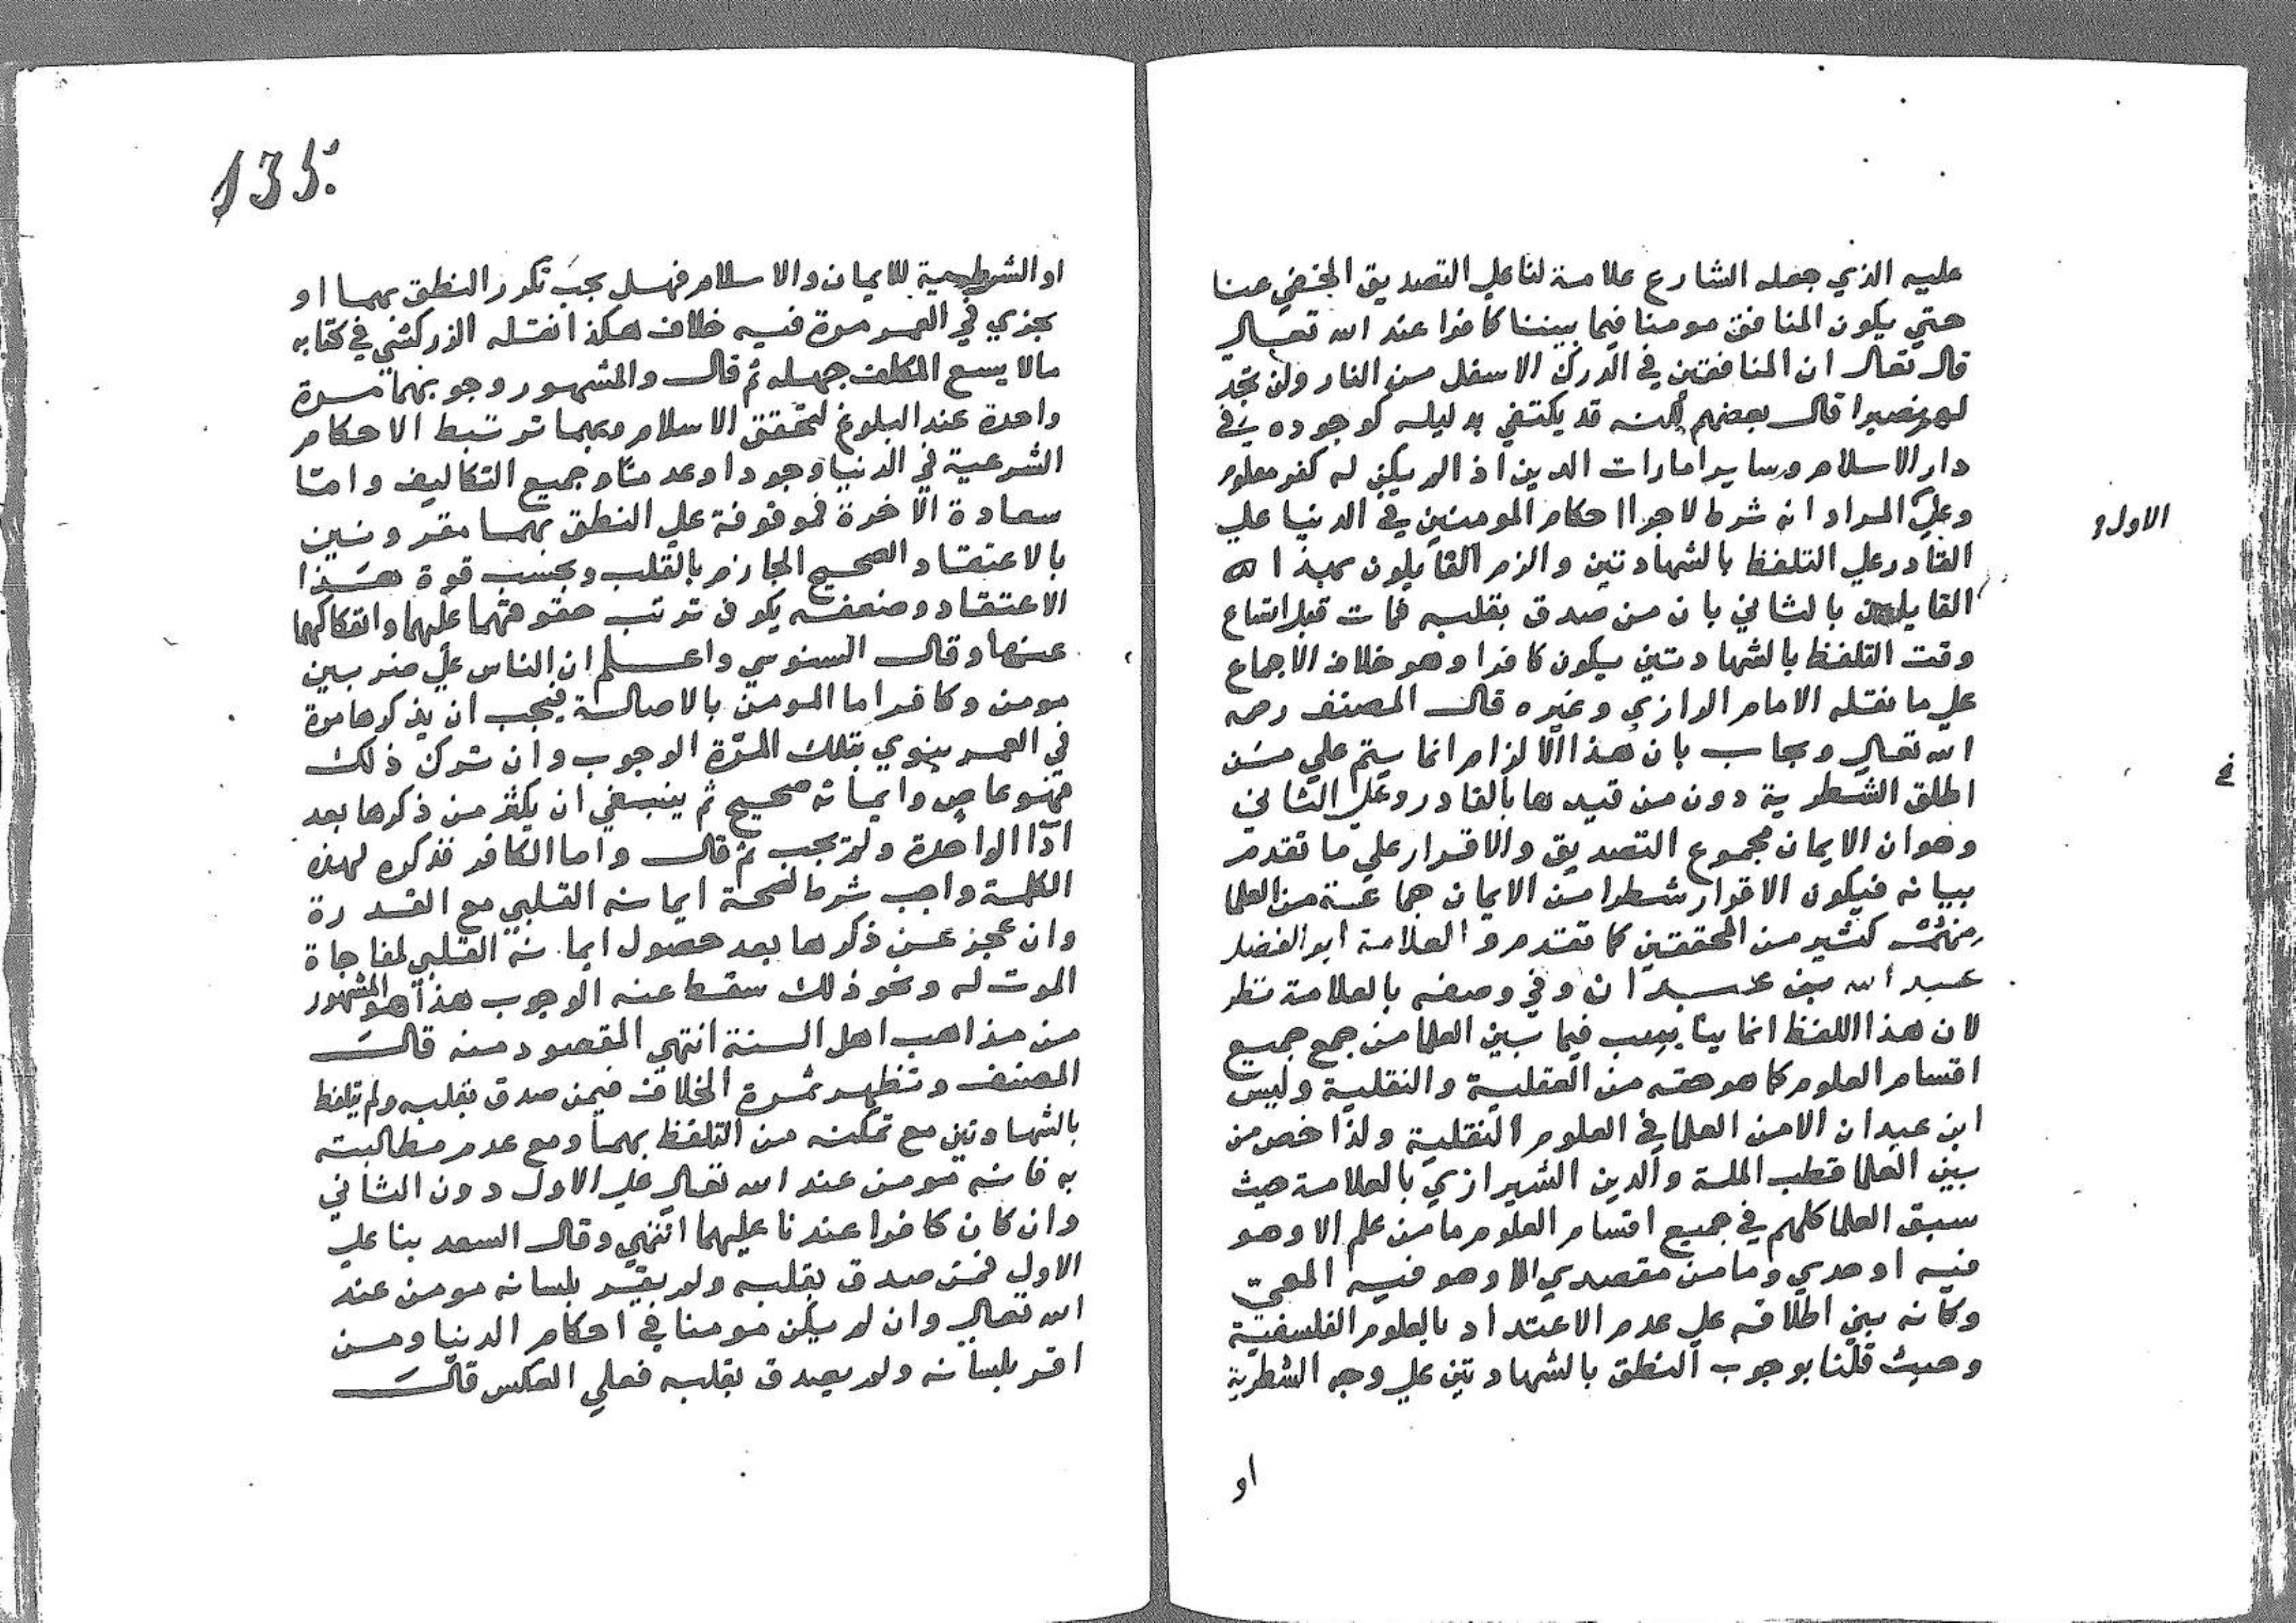 عليه الذي جعله الشارع علامة لنا علي التصديق الخفي عنا
حتي يكون المنافق مومنا فيما بيننا كافرا عند الله تعالي
قال تعالي ان المنافقين في الدرك الاسفل من النار ولن تجد
لهم نصيرا قال بعضهم لكنه قد يكتفي بدليله كوجوده في
دار الاسلام وساير امارات الدين اذا لم يكن له كفر معلوم
وعلي المراد انه شرط لاجرا احكام المومنين في الدنيا علي
الاول
القادر علي التلفظ بالشهادتين والزم القايلون بهذا
القايلين بالثاني بان من صدق بقلبه فمات قبل اتساع
وقت التلفظ بالشهادتين يكون كافرا وهو خلاف الاجماع
علي ما نقله الامام الرازي وغيره قال المصنف رحمه
الله تعالي ويجاب بان هذا الالزام انما يتم علي من
اطلق الشطرية دون من قيدها بالقادر وعلي الثاني
وهو ان الايمان مجموع التصديق والاقرار علي ما تقدم
بيانه فيكون الاقرار شطرا من الايمان جماعة من العلما
منهم كثير من المحققين كما تقدم و العلامة ابو الفضل
عبد الله بن عبدان وفي وصفه بالعلامة نظر
لان هذا اللفظ انما يناسب فيما بين العلما من جمع جميع
اقسام العلوم كما هو حقه من العقلية والنقلية وليس
ابن عبدان الا من العلما في العلوم النقلية ولذا خص من
بين العلما قطب الملة والدين الشيرازي بالعلامة حيث
سبق العلما كلهم في جميع اقسام العلوم ما من علم الا وهو
فيه اوحدي وما من مقصدي الا وهو فيه المعي
وكانه بني اطلاقه علي عدم الاعتداد بالعلوم الفلسفية
وحيث قلنا بوجوب النطق بالشهادتين علي وجه الشطرية
او
135
او الشرطية للايمان والاسلام فهل يجب تكرر النطق بهما او
يجزي في العمر مرة فيه خلاف هكذا نقله الزركشي في كتابه
مالا يسع المكلف جهله ثم قال والمشهور وجوبهما مرة
واحدة عند البلوغ لتحقق الاسلام وبهما ترتبط الاحكام
الشرعية في الدنيا وجودا وعدما وجميع التكاليف واما
سعادة الاخرة فموقوفة علي النطق بهما مقرونين
بالاعتقاد الصحيح الجازم بالقلب وبحسب قوة هذا
الاعتقاد وضعفه يكون ترتب حقوقهما عليهما وانفكاكهما
عنها وقال السنوسي واعلم ان الناس علي ضربين
مومن وكافر اما المومن بالاصالة فيجب ان يذكرها مرة
في العمر ينوي بتلك المرة الوجوب وان ترك ذلك
فهو عاص وايمانه صحيح ثم ينبغي ان يكثر من ذكرها بعد
ادا الواحدة ولم يجب ثم قال واما الكافر فذكره لهذه
الكلمة واجب شرط لصحة ايمانه القلبي مع القدرة
وان عجز عن ذكرها بعد حصول ايمانه القلبي لمفاجاة
الموت له ونحو ذلك سقط عنه الوجوب هذا هو المشهور
من مذاهب اهل السنة انتهي المقصود منه قال
المصنف وتظهر ثمرة الخلاف فيمن صدق بقلبه ولم يتلفظ
بالشهادتين مع تمكنه من التلفظ بهما ومع عدم مطالبته
به فانه مومن عند الله تعالي علي الاول دون الثاني
وان كان كافرا عندنا عليهما انتهي وقال السعد بنا علي
الاول فمن صدق بقلبه ولم يقر بلسانه مومن عند
الله تعالي وان لم يكن مومنا في احكام الدنيا ومن
اقر بلسانه ولم يصدق بقلبه فعلي العكس قال